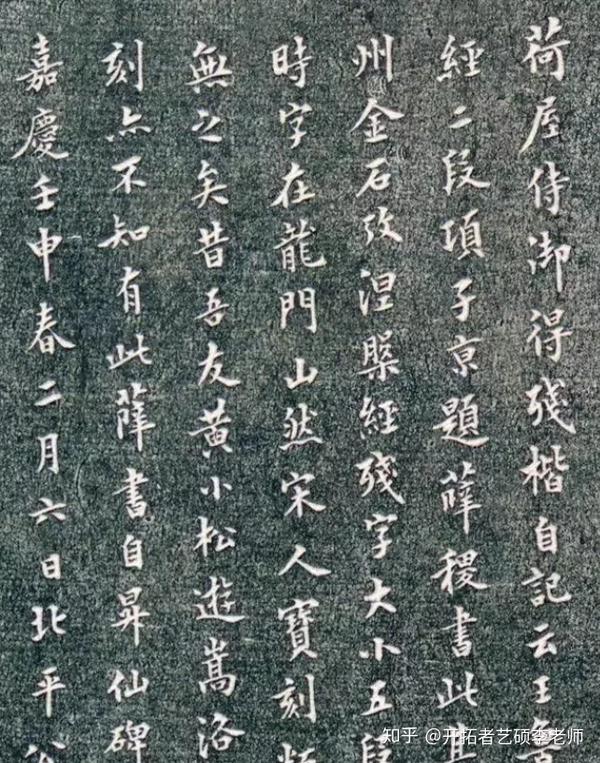 荷屋侍御得殘楷自記云王
經二段項子京題薛稷書此其
州金石攷涅槃經殘字大小五段
時字在龍門山然宋人寶刻
無之矣昔吾友黃小松遊嵩洛
刻亦不知有此薛書自昇仙碑
嘉慶壬申春二月六日北平翁
知乎 @开拓者艺硕李老师